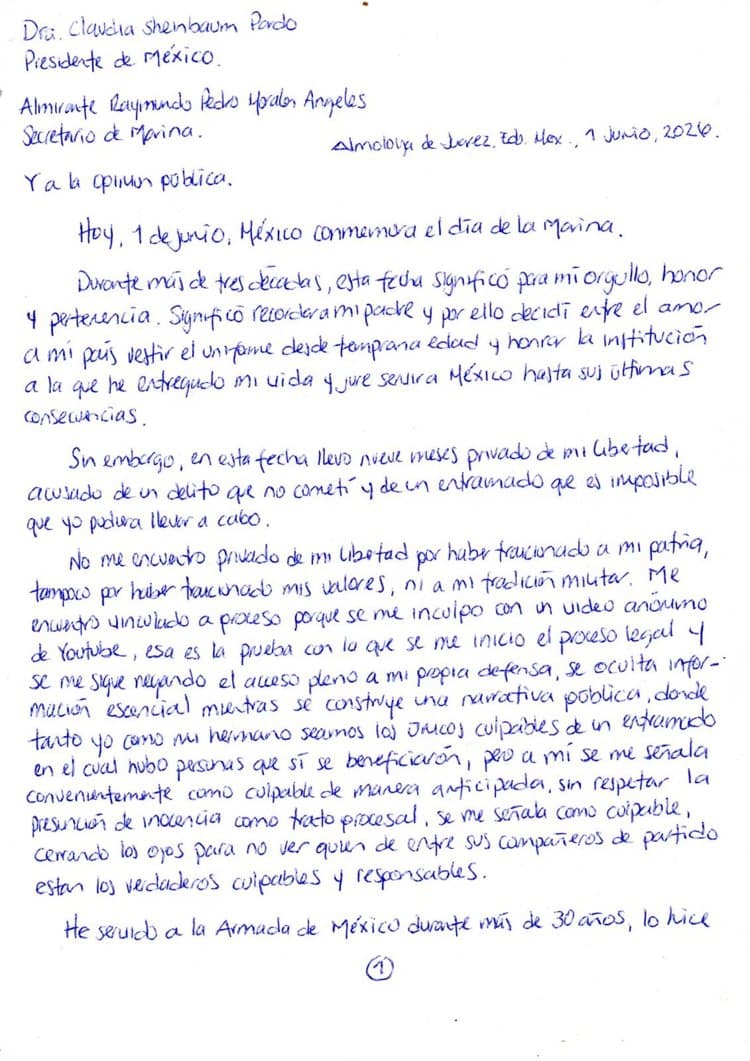 Dra. Claudia Sheinbaum Pardo
Presidente de México.
Almirante Raymundo Pedro Morales Angeles
Secretario de Marina.
Almoloya de Juárez, Edo. Mex., 1 Junio, 2026.
Y a la opinión pública.
Hoy, 1 de junio, México conmemora el día de la Marina.
Durante más de tres décadas, esta fecha significó para mi orgullo, honor
y pertenencia. Significó recordar a mi padre y por ello decidí entre el amor
a mi país vestir el uniforme desde temprana edad y honrar la institución
a la que he entregado mi vida y jure servir a México hasta sus últimas
consecuencias.
Sin embargo, en esta fecha llevo nueve meses privado de mi libertad,
acusado de un delito que no cometí y de un entramado que es imposible
que yo pudiera llevar a cabo.
No me encuentro privado de mi libertad por haber traicionado a mi patria,
tampoco por haber traicionado mis valores, ni a mi tradición militar. Me
encuentro vinculado a proceso porque se me inculpo con un video anónimo
de Youtube, esa es la prueba con la que se me inicio el proceso legal y
se me sigue negando el acceso pleno a mi propia defensa, se oculta infor-
mación escencial mientras se construye una narrativa pública, donde
tanto yo como mi hermano seamos los únicos culpables de un entramado
en el cual hubo personas que sí se beneficiarón, pero a mí se me señala
convenientemente como culpable de manera anticipada, sin respetar la
presunción de inocencia como trato procesal, se me señala como culpable,
cerrando los ojos para no ver quien de entre sus compañeros de partido
estan los verdaderos culpables y responsables.
He servido a la Armada de México durante más de 30 años, lo hice
1